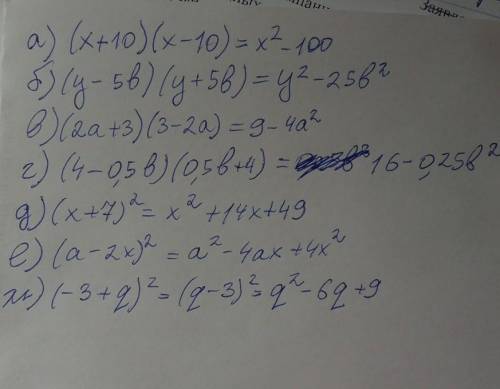 а) (x+10)(x-10)=x²-100
б) (y-5b)(y+5b)=y²-25b²
в) (2a+3)(3-2a)=9-4a²
г) (4-0,5b)(0,5b+4)= 16-0,25b²
д) (x+7)²= x²+14x+49
е) (a-2x)²=a²-4ax+4x²
ж) (-3+q)²=(q-3)²=q²-6q+9